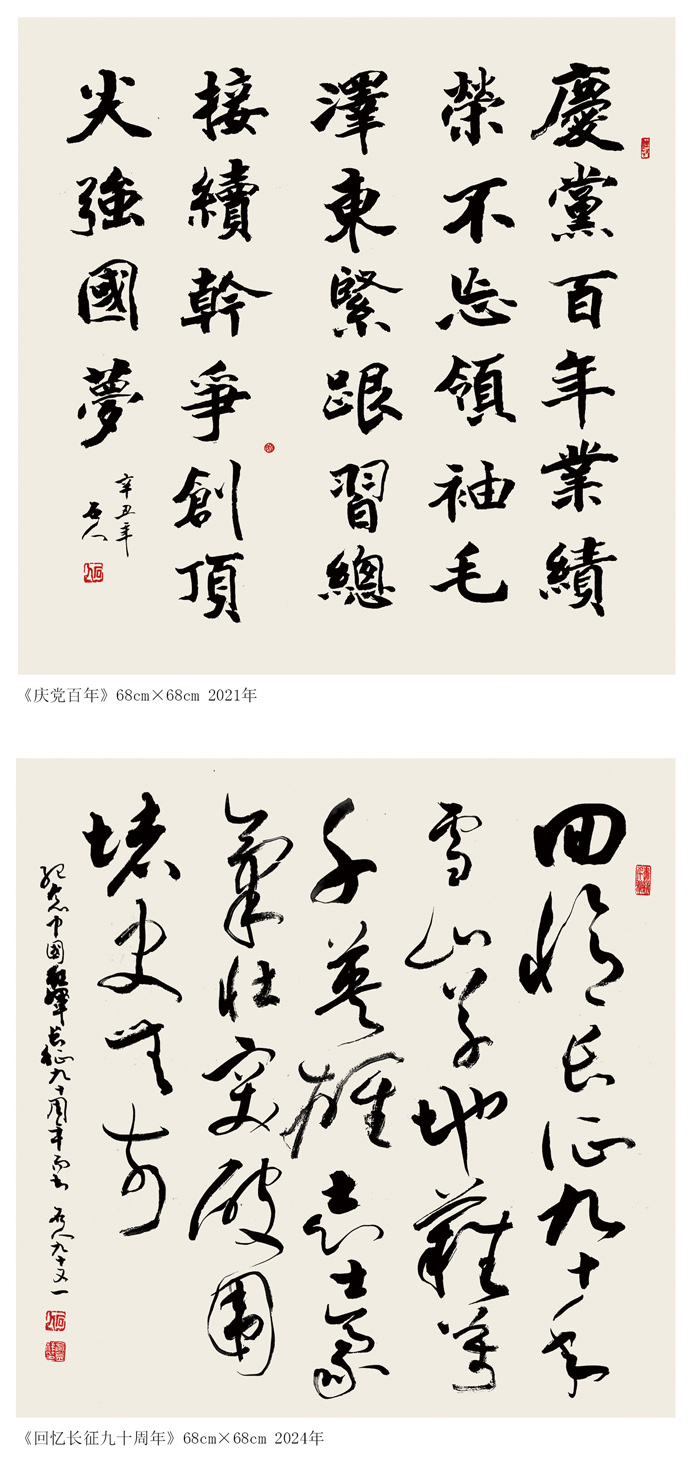 慶黨百年業績
榮不忘領袖毛
澤東緊跟習總
接續幹爭創頂
尖強國夢
辛丑年
石人
《庆党百年》68cm×68cm 2021年
回憶长征九十年
雪山草地難萬
千英雄志士豪
氣壮突破围
堵史無前
纪念中国红軍长征九十周年而书 石人九十又一
《回忆长征九十周年》68cm×68cm 2024年